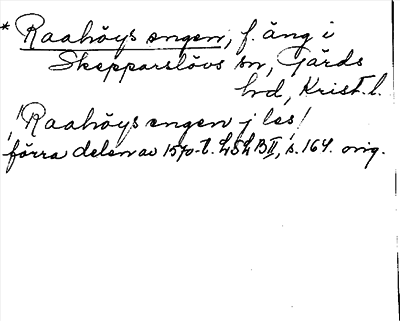 * Raahöys engen, f. äng i
Skepparslövs sn, Gärds
hd, Krist. l.
"Raahöys engen j les"
förra delen av 1570-t. LSLB II, s. 164. orig.